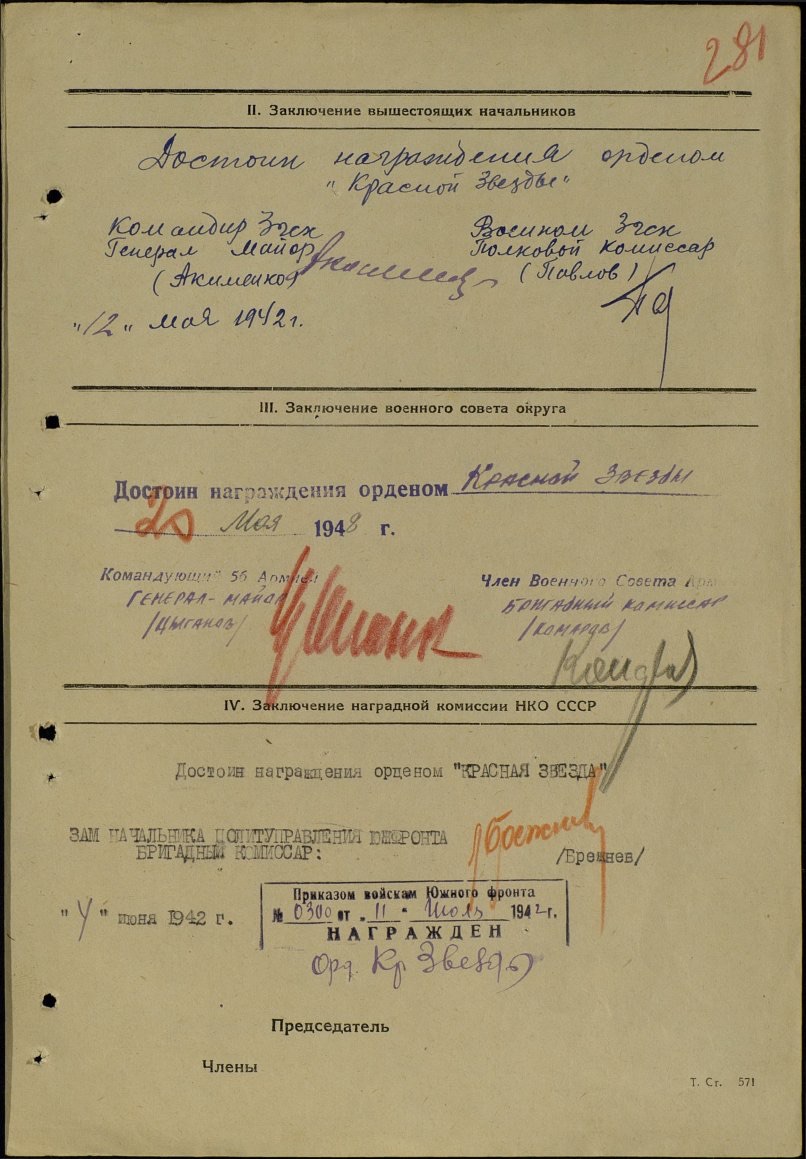 281
II. Заключение вышестоящих начальников
Достоин награждения орденом
"Красной Звезды"
Командир 3 гск Военком 3 гск
Генерал Майор Полковой комиссар
(Акименко) (Павлов)
"12" мая 1942г.
III. Заключение военного совета округа
Достоин награждения орденом Красной Звезды
20 Мая 194 г.
Командующий 56 Армией Член Военного Совета Арм
ГЕНЕРАЛ-МАЙОР БРИГАДНЫЙ КОМИССАР
/ЦЫГАНОВ/ /КОМАРОВ/
IV. Заключение наградной комиссии НКО СССР
Достоин награждения орденом "КРАСНАЯ ЗВЕЗДА"
ЗАМ НАЧАЛЬНИКА ПОЛИТУПРАВЛЕНИЯ ЮЖФРОНТА
БРИГАДНЫЙ КОМИССАР: /Брежнев/
"4" июня 1942 г.
Приказом войскам Южного фронта
№ 0300 от "11" Июль 1942г.
НАГРАЖДЕН
Орд. Кр Звезды
Председатель
Члены
Т. Ст. 571